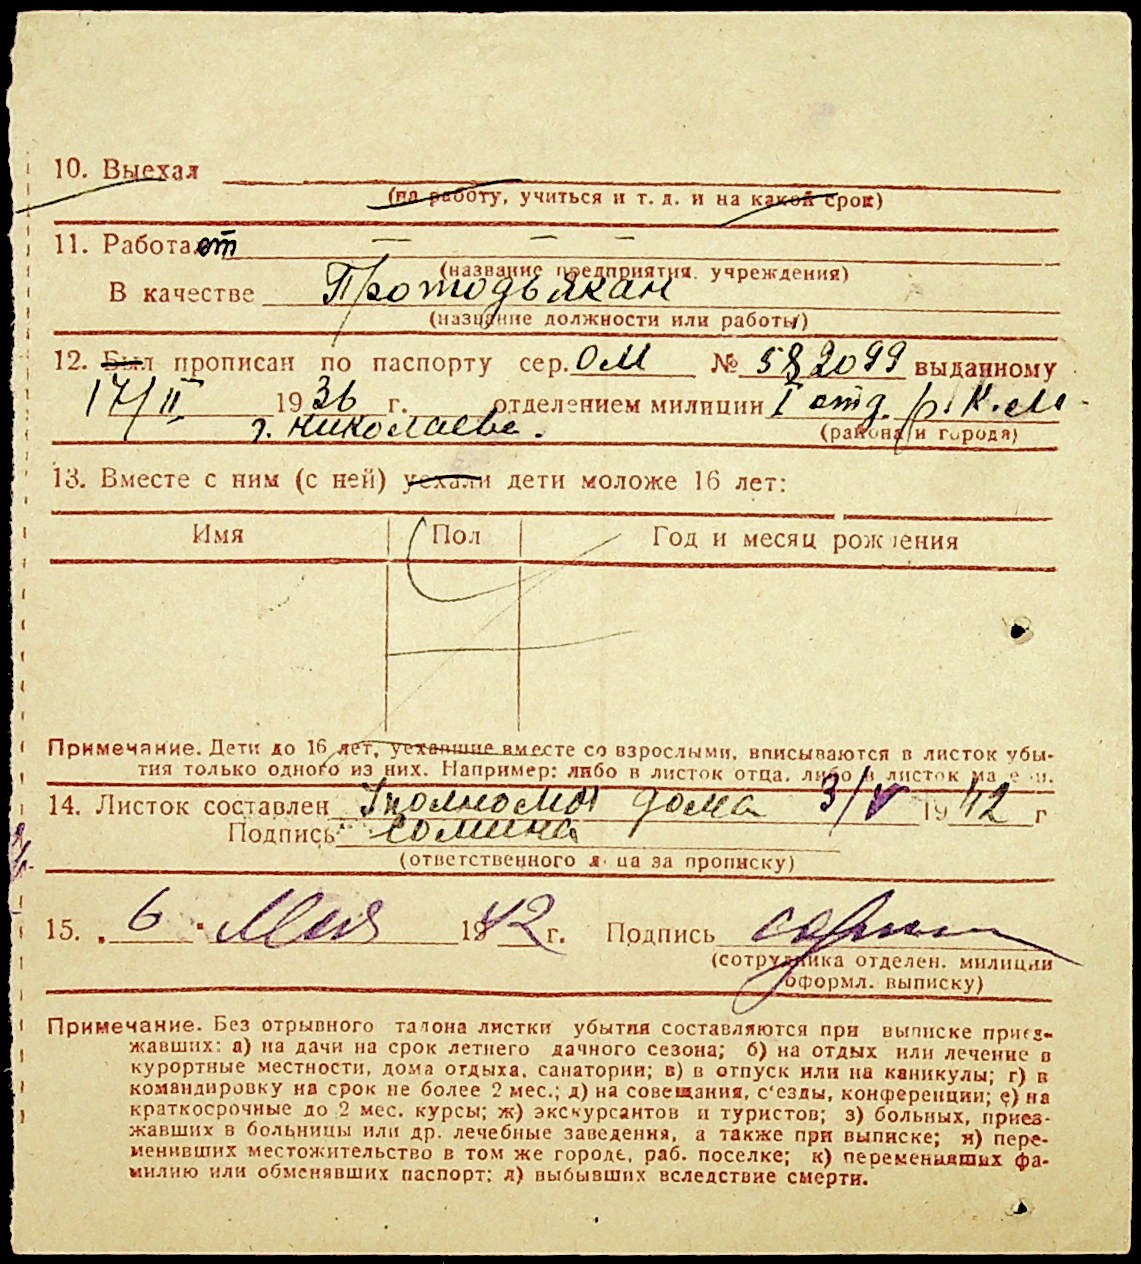 10. Выехал
(на работу, учиться и т. д. и на какой срок)
11. Работает — — —
(название предприятия, учреждения)
В качестве Протодьякан
(название должности или работы)
12. Был прописан по паспорту сер. ОМ № 582099 выданному
17/II 1936 г. отделением милиции I отд. р. К. М.
г. Николаева.
(района и города)
13. Вместе с ним (с ней) уехали дети моложе 16 лет:
Имя Пол Год и месяц рождения
Примечание. Дети до 16 лет, уехавшие вместе со взрослыми, вписываются в листок убы-
тия только одного из них. Например: либо в листок отца, либо в листок ма е и.
14. Листок составлен Уполномоч дома 3/V 1942 г
Подпись Сомина
(ответственного л ца за прописку)
15. „6" Мая 1942 г. Подпись
(сотрудника отделен. милиции
оформл. выписку)
Примечание. Без отрывного талона листки убытия составляются при выписке приез-
жавших: а) на дачи на срок летнего дачного сезона; б) на отдых или лечение в
курортные местности, дома отдыха, санатории; в) в отпуск или на каникулы; г) в
командировку на срок не более 2 мес.; д) на совещания, с'езды, конференции; е) на
краткосрочные до 2 мес. курсы; ж) экскурсантов и туристов; з) больных, приез-
жавших в больницы или др. лечебные заведения, а также при выписке; и) пере-
менивших местожительство в том же городе, раб. поселке; к) переменивших фа-
милию или обменявших паспорт; л) выбывших вследствие смерти.